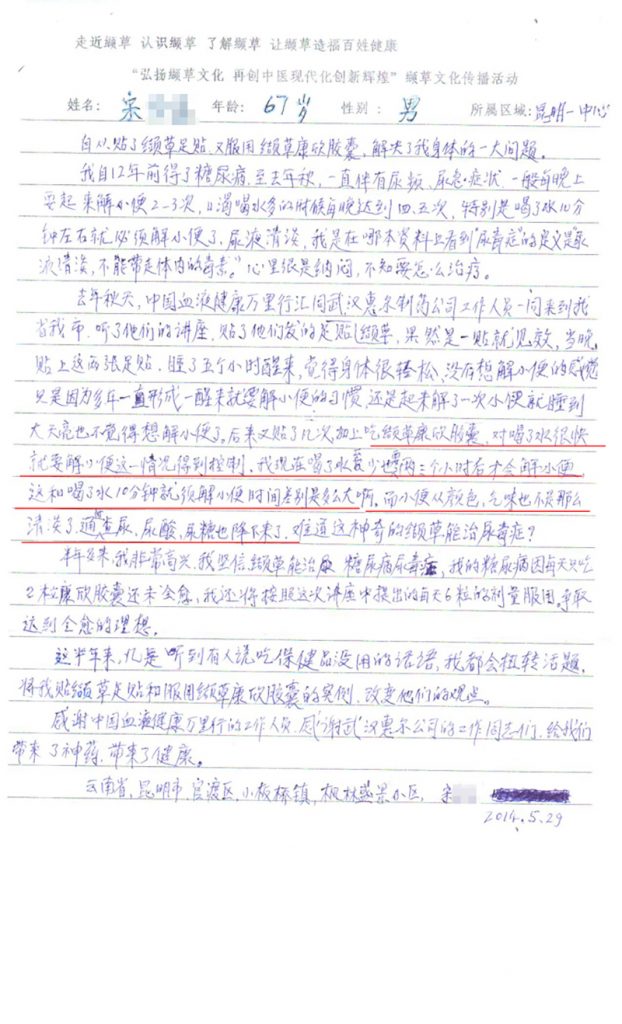 走近缬草 认识缬草 了解缬草 让缬草造福百姓健康
“弘扬缬草文化 再创中医现代化创新辉煌”缬草文化传播活动
姓名: 宋 年龄: 67岁 性别: 男 所属区域:昆明一中心
自从贴了缬草足贴.又服用缬草康欣胶囊.解决了我身体的一大问题.
我自12年前得了糖尿病.至去年秋,一直伴有尿频、尿急症状.一般每晚上
要起来解小便2-3次,口渴喝水多的时候每晚达到四.五次,特别是喝了水10分
钟左右就必须解小便了.尿液清淡,我是在哪本资料上看到“尿毒症”的定义是“尿
液清淡,不能带走体内的毒素.”心里很是纳闷,不知要怎么治疗.
去年秋天,中国血液健康万里行汇同武汉惠尔制药公司工作人员一同来到我
省我市.听了他们的讲座.贴了他们发的足贴缬草,果然是一贴就见效,当晚
贴上这两张足贴.睡了五个小时醒来,觉得身体很轻松,没有想解小便的感觉
只是因为多年一直形成一醒来就要解小便的习惯,还是起来解了一次小便就睡到
大天亮也不觉得想解小便了.后来又贴了几次,加上吃缬草康欣胶囊,对喝了水很快
就要解小便这一情况得到控制,我现在喝了水至少也要两三个小时后才会解小便,
这和喝了水10分钟就须解小便时间差别是多么大啊.而小便从颜色,气味也不是那么
清淡了.通查尿,尿酸,尿糖也降下来了.难道这神奇的缬草能治尿毒症?
半年多来,我非常高兴.我坚信缬草能治尿 糖尿病尿毒症,我的糖尿病因每天只吃
2粒康欣胶囊还未全愈,我还将按照这次讲座中提出的每天6粒的剂量服用.争取
达到全愈的理想.
这半年来,凡是听到有人说吃保健品没用的话语,我都会扭转话题,
将我贴缬草足贴和服用缬草康欣胶囊的实例,改变他们的观点.
感谢中国血液健康万里行的工作人员.感谢武汉惠尔公司的工作同志们.给我们
带来了神药.带来了健康。
云南省,昆明市.官渡区,小板桥镇,枫林盛景小区, 宋
2014.5.29